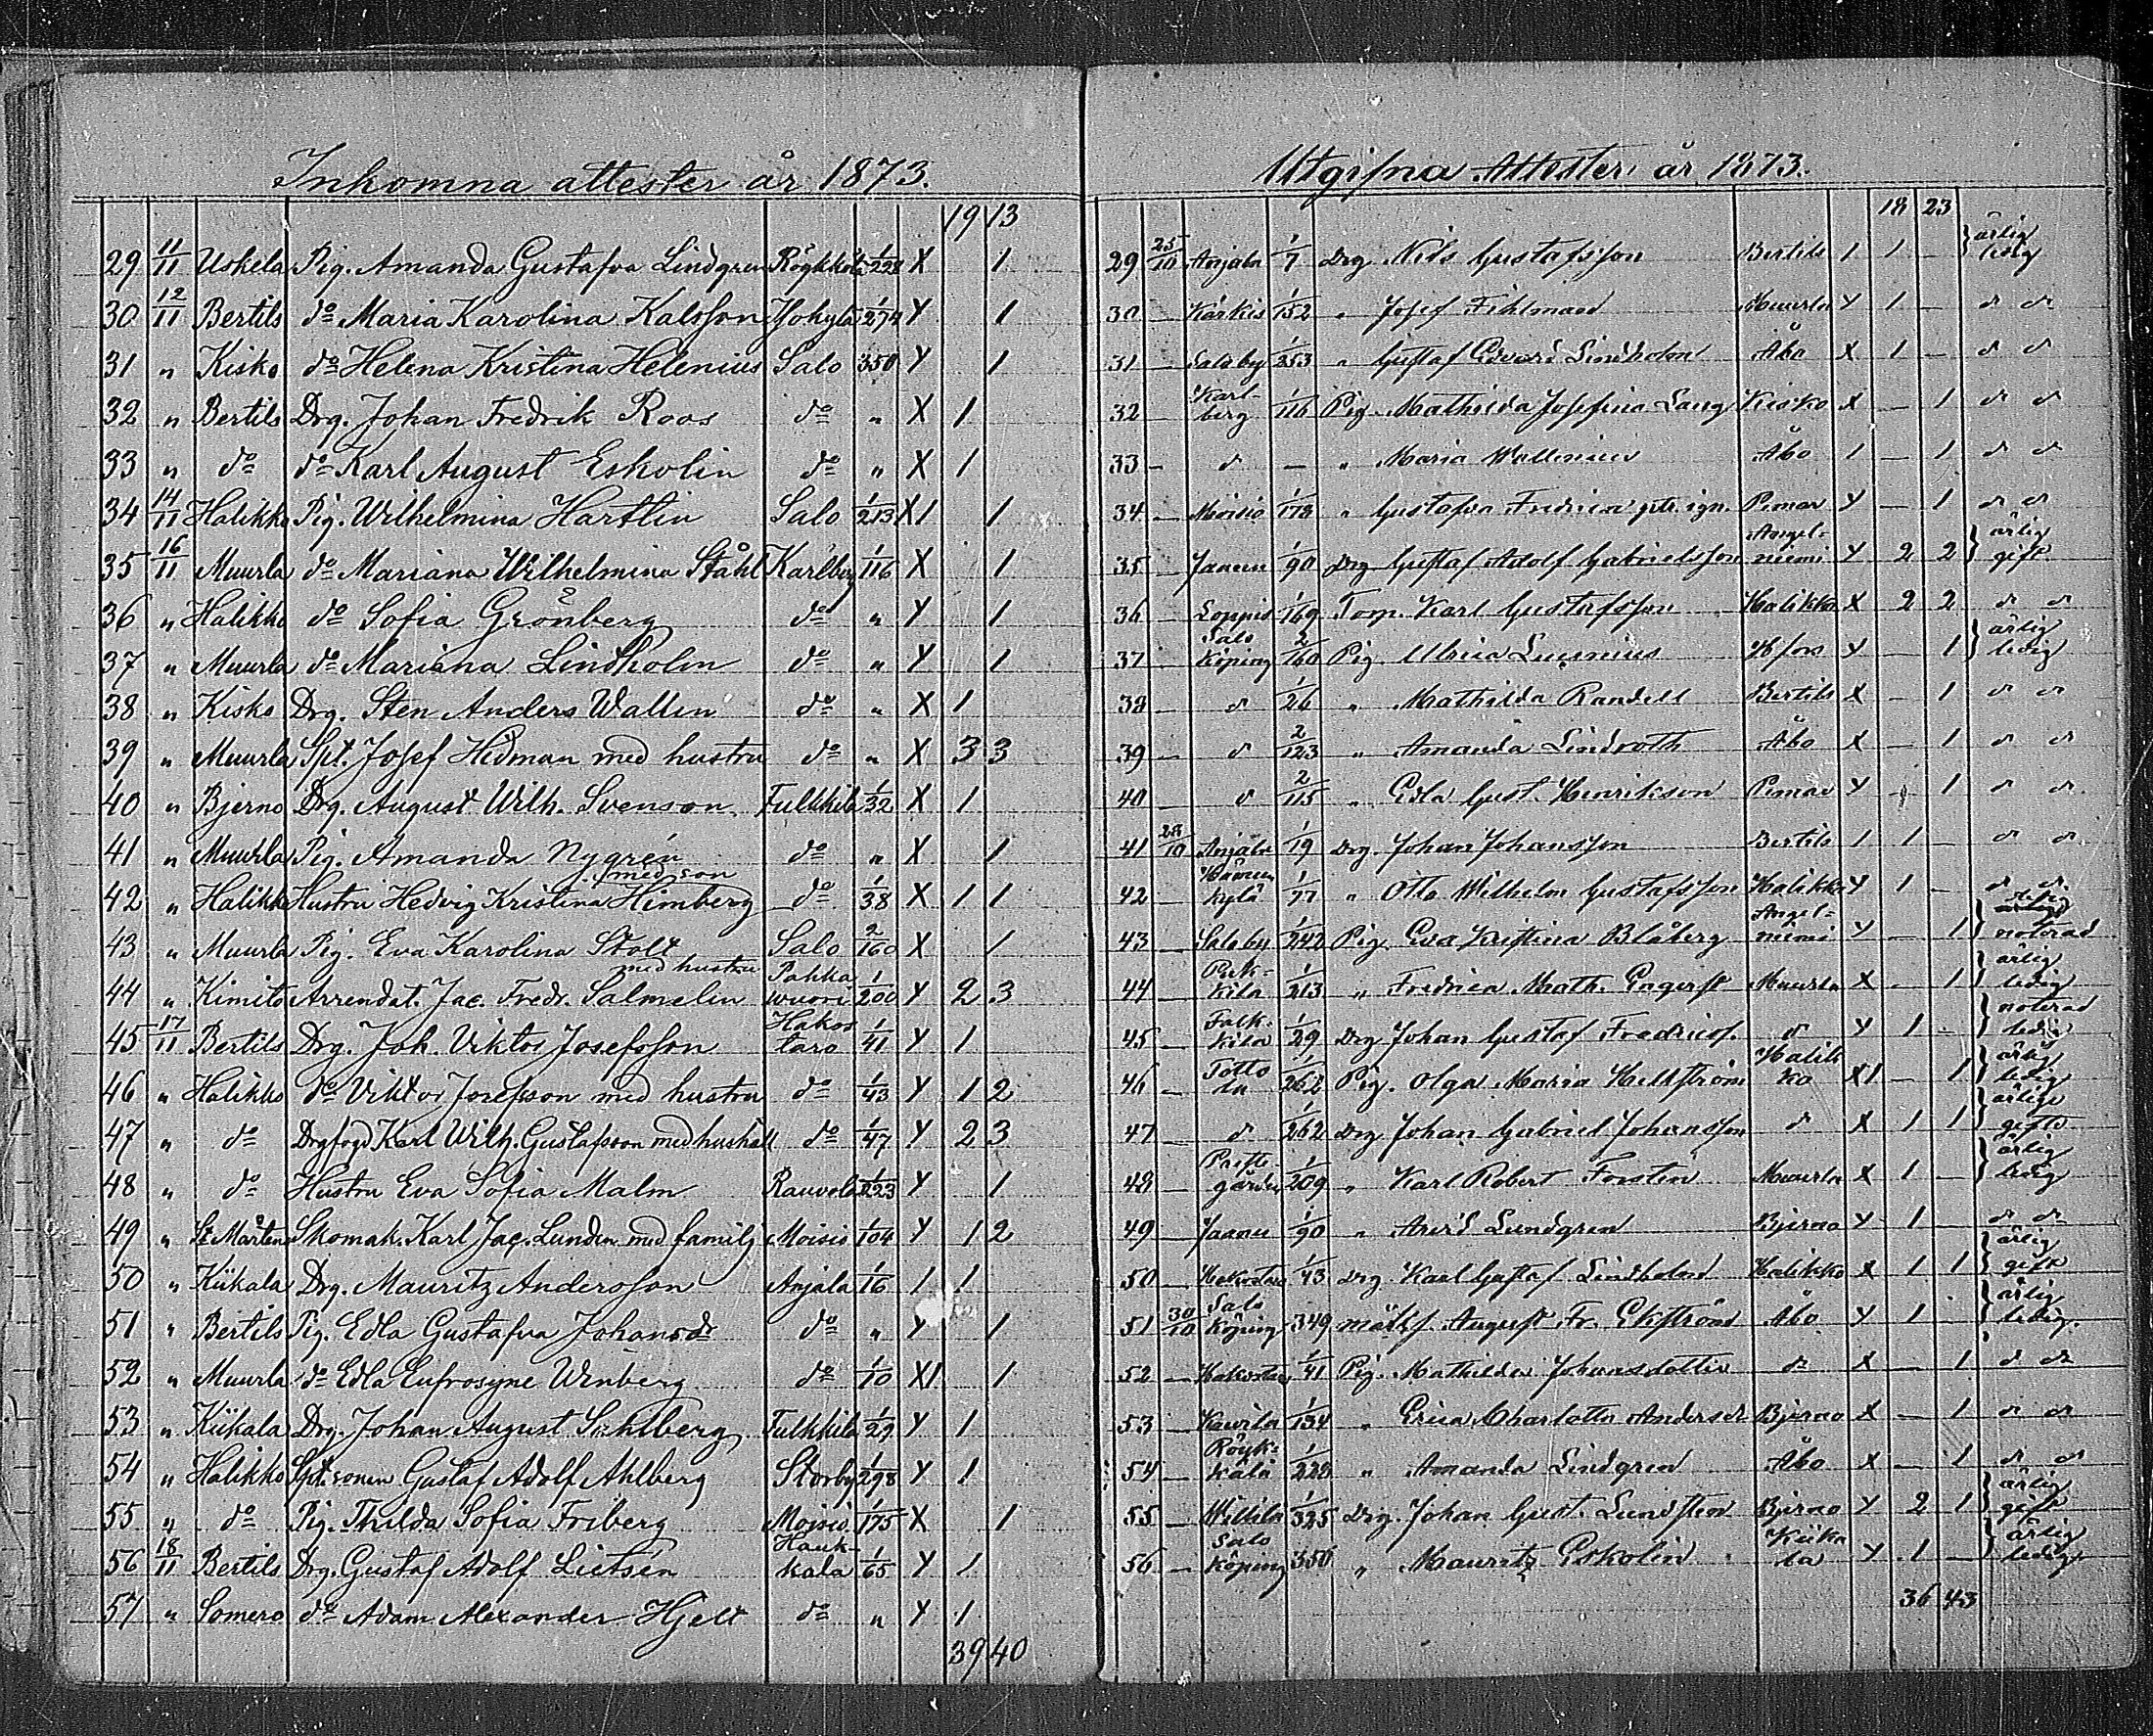 Inkomna attester år 1873.
19 13
29 11/11 Uskela Pig. Amanda Gustafva Lindgren Röykkölä 1/228 X 1
30 12/11 Bertils do Maria Karolina Kalsson 1/274 Y 1
31 " Kisko do Helena Kristina Helenius Salo 350 Y 1
32 " Bertils Drg. Johan Fredrik Roos do " X 1
33 " do do Karl August Eskolin do " X 1
34 14/11 Halikko Pig. Wilhelmina Hartlin Salo 1/213 X1 1
35 16/11 Muurla do Mariana Wilhelmina Ståhl Karlberg 1/116 X 1
36 " Halikko do Sofia Grönberg do " Y 1
37 " Muurla do Mariana Lindholm do " Y 1
38 " Kisko Drg. Sten Anders Wallin do " X 1
39 " Muurla Spt. Josef Hidman med hustru do " X 3 3
40 " Bjerno Drg. August Wilh. Svenson Fulkkila 1/32 X 1
41 " Muurla Pig. Amanda Nygrén do " X 1
med son
42 " Halikko Hustru Hedvig Kristina Himberg do 1/38 X 1 1
43 " Muurla Pig. Eva Karolina Stolt Salo 2/160 X 1
med hustru Pahka
44 " Kimito Arrendat. Jac. Fredr. Salmelin wuori 1/200 Y 2 3
Hakos
45 17/11 Bertils Drg. Joh. Viktor Josefsson taro 1/41 Y 1
46 " Halikko do Viktor Josefsson med hustru do 1/43 Y 1 2
47 " do Drgfogd Karl Wilh. Gustafsson med hushåll do 1/47 Y 2 3
48 " do Hustru Eva Sofia Malm Rauvola 1/223 Y 1
49 " St Mårtens Skomak. Karl Jac. Lunden med familj Moisio 1/104 Y 1 2
50 " Kiikala Drg. Mauritz Andersson Anjala 1/16 1 1
51 " Bertils Pig. Edla Gustafva Johansdr do " Y 1
52 " Muurla do Edla Eufrosyne Winberg do 1/10 X1 1
53 " Kiikala Drg. Johan August Sahlberg Fulkkila 1/29 Y 1
54 " Halikko Spt.sonen Gustaf Adolf Ahlberg Storby 1/298 Y 1
55 " do Pig. Thilda Sofia Friberg Moisio 1/175 X 1
Hauk-
56 18/11 Bertils Drg. Gustaf Adolf Lietsén kala 1/65 Y 1
57 " Somero do Adam Alexander Hjelt do " Y 1
39 40
Utgifna Attester år 1873.
18 23
29 25/10 Anjala 1/7 Drg Nils Gustafsson Bertils 1 1 — ärlig ledig
30 — Kärkis 1/152 " Josef Fihlman Muurla Y 1 — d d
31 — Salo by 1/253 " Gustaf Edvard Lindholm Åbo X 1 — d d
32 — Karl-berg 1/116 Pig. Mathilda Josefina Lang Kisko X — 1 d d
33 — d — " Maria Wallenius Åbo 1 — 1 d d
34 — Moisio 1/178 " Gustafva Fredrica Pemar Y — 1 d d
35 — Jaanu 1/90 Drg Gustaf Adolf Gabrielsson Angel-niemi Y 2 2 ärlig gift
36 — Loppis 1/169 Tom. Karl Gustafsson Halikko X 2 2 d d
37 Salo köping 2/160 Pig. Ulrica H.fors Y — 1 ärlig ledig
38 — d 1/26 " Mathilda Randell Bertils X — 1 d d
39 — d 2/123 " Amanda Lindroth Åbo X — 1 d d
40 — d 2/115 " Edla Gust. Henrikson Pemar Y — 1 d d
41 28/10 Anjala 1/19 Drg. Johan Johansson Bertils 1 1 — d d
42 — kylä 1/77 " Otto Wilhelm Gustafsson Halikko Y 1 — d d
43 — Salo by 1/242 Pig. Eva Kristina Blåberg Angel-niemi Y 1 noterad
44 — kila 1/213 " Fredrica Math. Muurla X 1 ärlig ledig
45 — kila 1/29 Drg Johan Gustaf Fredricss. d Y 1 noterad ledig
46 — Totto la 1/262 Pig. Olga Maria Hellström Halikko X1 — 1 ärlig ledig
47 — d 1/262 Drg Johan Gabriel Johansson d X 1 1 ärlige gifte
48 — Prestgården 1/209 " Karl Robert Forstén Muurla X 1 — ärlig ledig
49 — Jaanu 1/90 " Arvid Lundgren Bjerno Y 1 — d d
50 — Hakostaro 1/43 Drg Karl Gustaf Lindholm Halikko X 1 1 ärlig gift
51 30/10 Salo köping 349 August Fr. Ekström Åbo Y 1 — ärlig ledig.
52 — Hakostaro 1/41 Pig. Mathilda Johansdotter d X — 1 d d
53 — Kavila 1/134 " Erica Charlotta Andersdr Bjerno X — 1 d d
54 — Röyk-kälä 1/228 " Amanda Lindgren Åbo X — 1 d d
55 — Willila 1/325 Drg. Johan Gust. Lundsten Bjerno Y 2 1 ärlig gift
56 — Salo köping 350 " Mauritz Eskolin Kiikala Y 1 — ärlig ledig
36 43